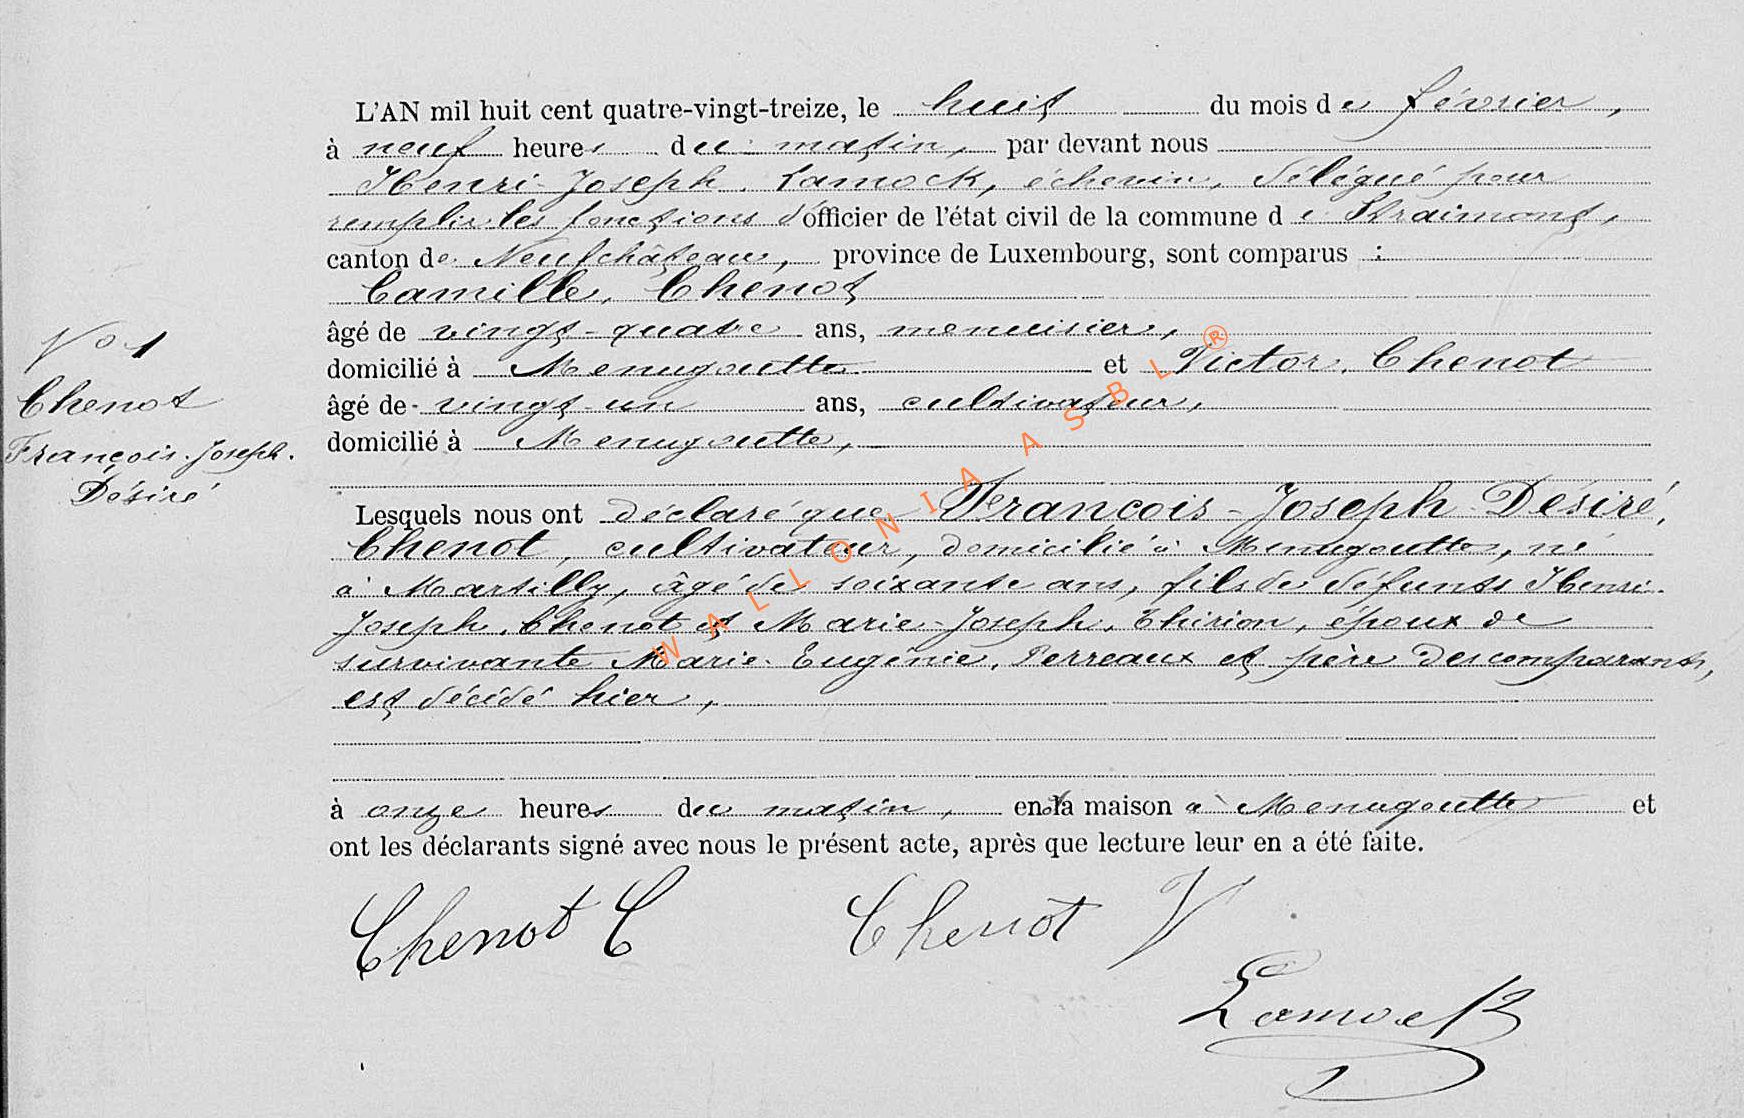 L'AN mil huit cent quatre-vingt-treize, le huit du mois de février,
à neuf heures du matin, par devant nous
Henri-Joseph Lamock, échevin, délégué pour
remplir les fonctions d'officier de l'état civil de la commune de Straimont,
canton de Neufchâteau, province de Luxembourg, sont comparus :
Camille Chenot
âgé de vingt-quatre ans, menuisier,
domicilié à Menugoutte et Victor Chenot
âgé de vingt-un ans, cultivateur,
domicilié à Menugoutte,
No 1
Chenot
François-Joseph.
Désiré
Lesquels nous ont déclaré que François-Joseph-Désiré,
Chenot, cultivateur, domicilié à Menugoutte, né
à Martilly, âgé de soixante ans, fils de défunts Henri-
Joseph Chenot et Marie-Joseph Thirion, époux de
survivante Marie-Eugénie Perreaux et père des comparants,
est décédé hier,
à onze heures du matin, en sa maison à Menugoutte et
ont les déclarants signé avec nous le présent acte, après que lecture leur en a été faite.
Chenot C Chenot V
Lamock
WALLONIA ASBL ®